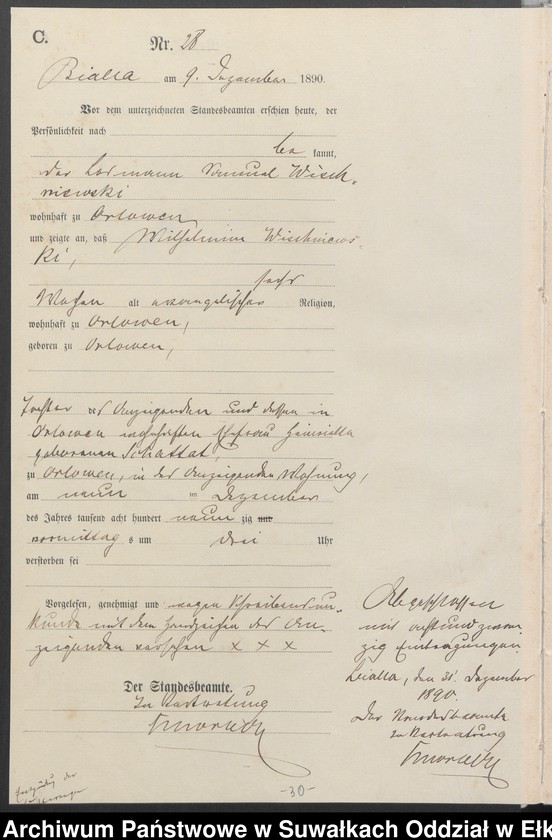 C.
Nr. 28
Bialla am 9. Dezember 1890.
Vor dem unterzeichneten Standesbeamten erschien heute, der
Persönlichkeit nach
be kannt,
der Losmann Samuel Wisch-
niewski
wohnhaft zu Orlowen
und zeigte an, daß Wilhelmine Wischniews-
ki,
sechs
Wochen alt evangelischer Religion,
wohnhaft zu Orlowen,
geboren zu Orlowen,
Tochter des Anzeigenden und dessen in
Orlowen wohnhaften Ehefrau Heinriette
geborenen Schattat,
zu Orlowen, in des Anzeigenden Wohnung,
am neun ten Dezember
des Jahres tausend acht hundert neun zig und
vormittag s um drei Uhr
verstorben sei
Vorgelesen, genehmigt und wegen Schreibensun-
kunde mit dem Handzeichen des An-
zeigenden versehen x x x
Der Standesbeamte.
In Vertretung
Abgeschlossen
mit achtundzwan-
zig Eintragungen
Bialla, den 31. Dezember
1890.
Der Standesbeamte
In Vertretung
-30-
Archiwum Państwowe w Suwałkach Oddział w Ełk